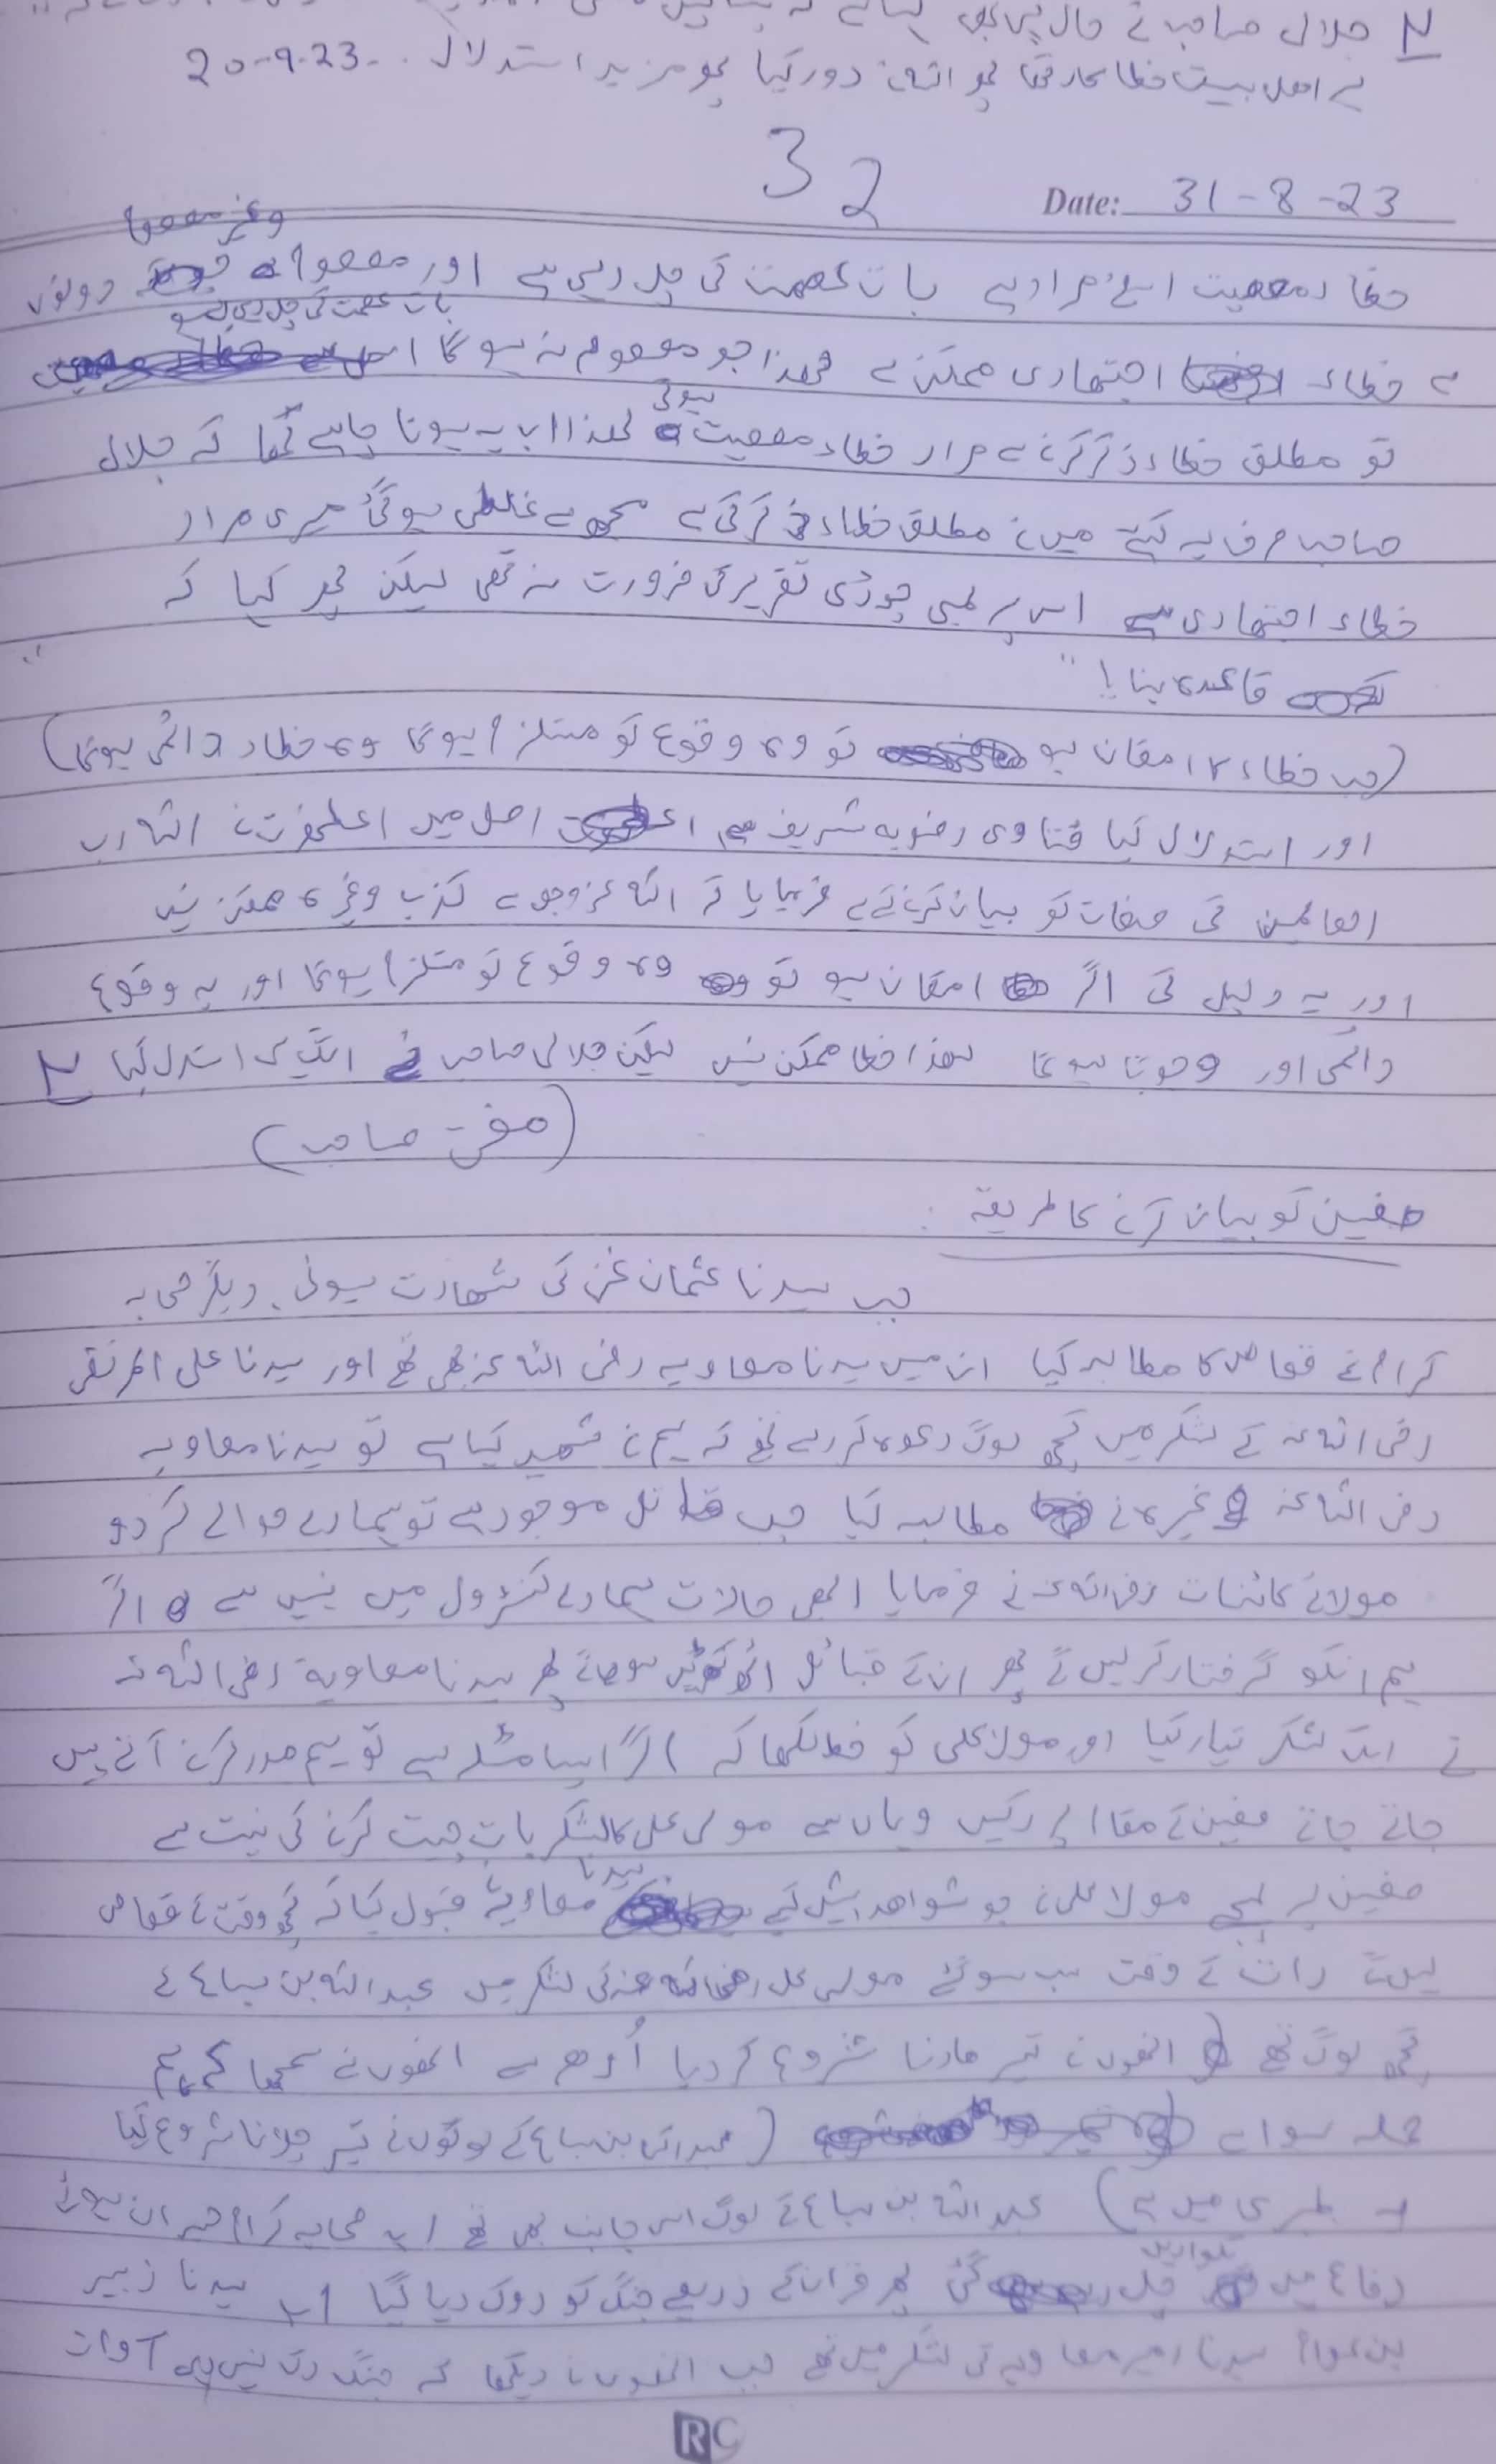 جلالی صاحب نے حال پس بھی
سے اھل بیت خطا پھر مزید استدلال . . 20-9-23
32
Date: 31-8-23
وغیر معصوم
خطاء معصیت اسلئے مراد ہے بات عصمت کی چل رہی ہے اور معصوم دونوں
بات عصمت کی چل رہی ہو
سے خطاء اجتھادی ممکن ہے لھذا جو معصوم نہ ہوگا
تو مطلق خطاء ذکر کرنے سے مراد خطاء معصیت ہوگی لھذا اب یہ ہونا چاہے تھا کہ جلالی
صاحب صرف یہ کہتے میں نے مطلق خطاء ذکر کی ہے مجھ سے غلطی ہوگئی میری مراد
خطاء اجتھادی ہے اس پر لمبی چوڑی تقریر کی ضرورت نہ تھی لیکن پھر کیا کہ
قاعدہ بنایا "
(جب خطاء کا امقان ہو تو وہ وقوع کو مستلزم ہوگا وہ خطاء دائمی ہوگا)
اور استدلال کیا فتاوی رضویہ شریف سے اصل میں اعلحضرت نے اللہ رب
العالمین کی صفات کو بیان کرتے ہے فرمایا کہ اللہ عزوجل سے کذب وغیرہ ممکن نہیں
اور یہ دلیل کی اگر امقان ہو تو وہ وقوع کو مستلزم ہوگا اور یہ وقوع
دائمی اور وجوبا ہوگا لھذا خطا ممکن نہیں لیکن جلالی صاحب نے استدلال کیا
(مفتی صاحب)
صفین کو بیان کرنے کا طریقہ :
جب سیدنا عثمان غنی کی شھادت ہوئی، دیگر صحابہ
کرام نے قصاص کا مطالبہ کیا ان میں سیدنا معاویہ رضی اللہ عنہ بھی تھے اور سیدنا علی المرتضی
رضی اللہ عنہ کے لشکر میں کچھ لوگ دعوہ کر رہے تھے کہ ہم نے شھید کیا ہے تو سیدنا معاویہ
رضی اللہ عنہ وغیرہ نے مطالبہ کیا جب قاتل موجود ہے تو ہمارے حوالے کر دو
مولائے کائنات رضی اللہ عنہ نے فرمایا ابھی حالات ہمارے کنٹرول میں نہیں ہے اگر
ہم انکو گرفتار کر لیں گے پھر ان کے قبائل اٹھ کھڑیں ہو جائے پھر سیدنا معاویة رضی اللہ عنہ
نے ایک لشکر تیار کیا اور مولا علی کو خط لکھا کہ اگر ایسا مسئلہ ہے تو ہم مدد کرنے آتے ہیں
جاتے جاتے صفین کے مقام پر رکیں وہاں سے مولی علی کا لشکر بات چیت کرنے کی نیت سے
صفین پر مولا علی نے جو شواھد پیش کیے سیدنا معاویہ نے قبول کیا کہ کچھ وقت قصاص
لیں گے رات کے وقت سب سو گئے مولی علی رضی اللہ عنہ کی لشکر میں عبد اللہ بن سباء کے
کچھ لوگ تھے انھوں نے تیر مارنا شروع کر دیا اُدھر سے انھوں نے سمجھا کہ ہم پر
حملہ ہوا ہے (عبداللہ بن سباء کے لوگوں نے تیر چلانا شروع کیا
یہ طبری میں ہے) عبد اللہ بن سباء کے لوگ اس جانب بھی تھے اب صحابہ کرام حیران ہوئے
دفاع میں تلواریں چل گئی پھر قرآن کے ذریعے جنگ کو روک دیا گیا اب سیدنا زبیر
بن عوام سیدنا امیر معاویہ کی لشکر میں تھے جب انھوں نے دیکھا کہ جنگ رک نہیں رہی
RC